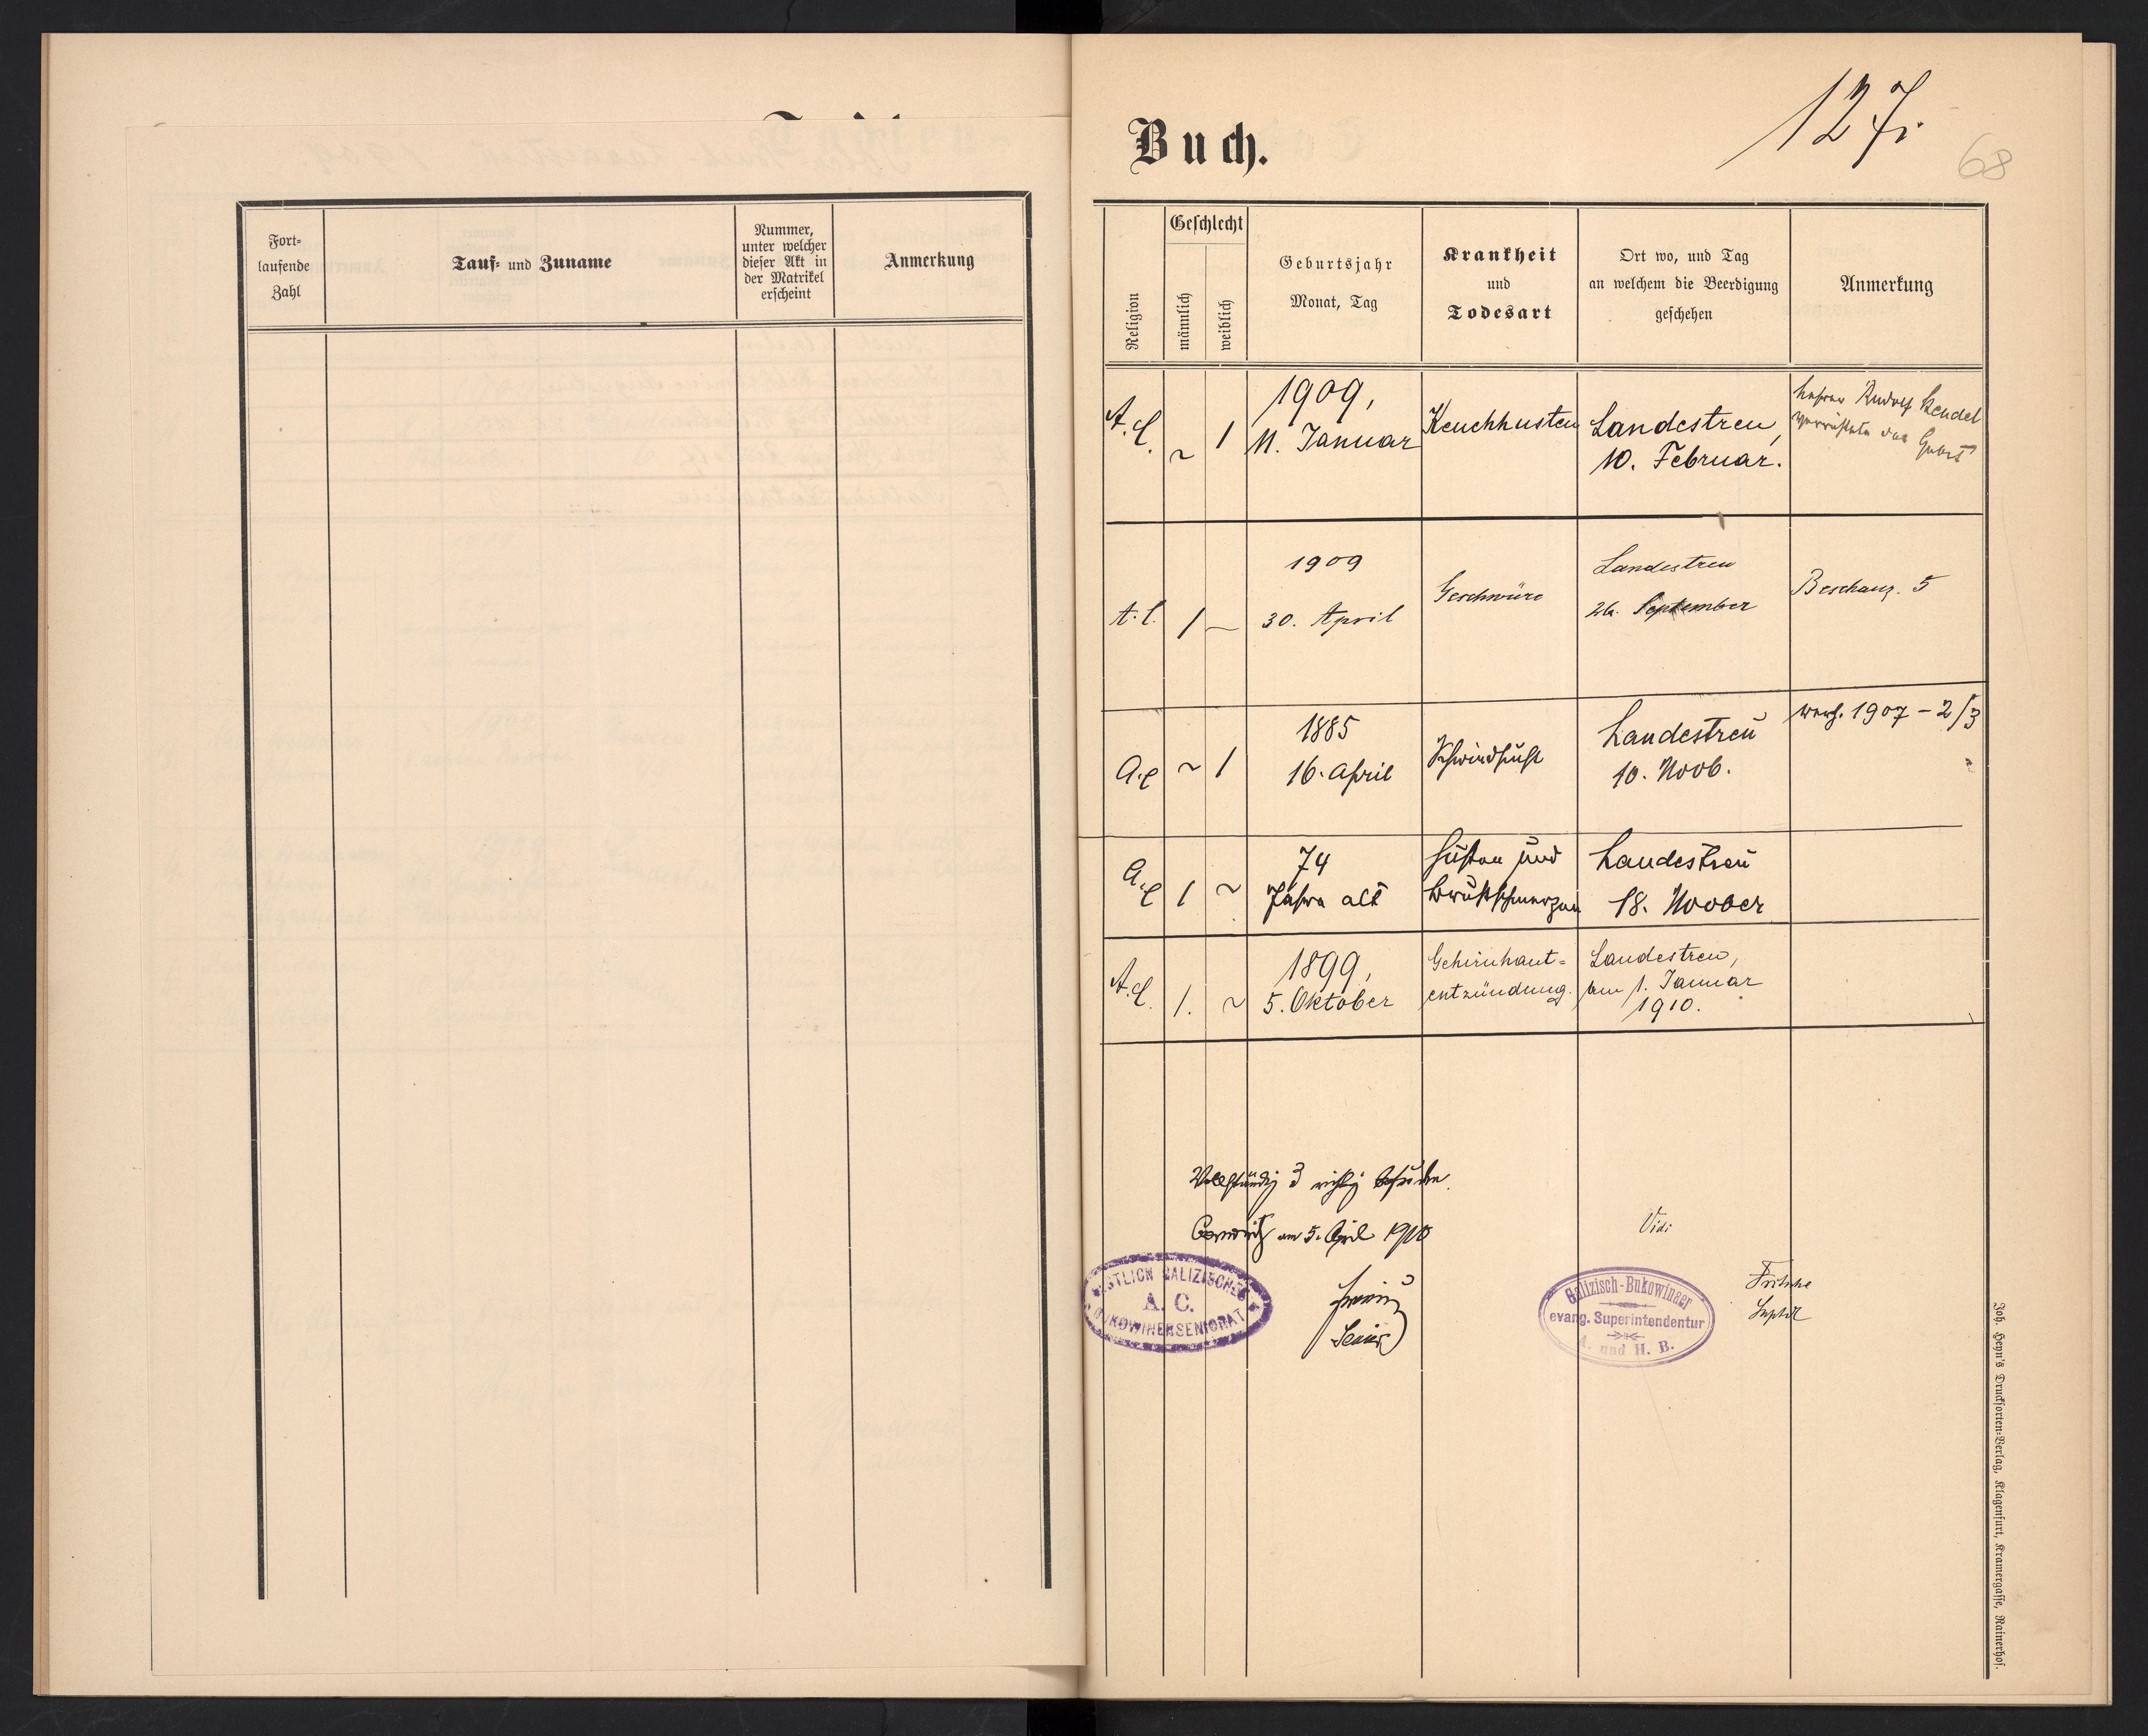 Fort-
laufende
Zahl
Tauf- und Zuname
Nummer,
unter welcher
dieser Akt in
der Matrikel
erscheint
Anmerkung
Buch.
127.
68
Religion
Geschlecht
männlich
weiblich
Geburtsjahr
Monat, Tag
Krankheit
und
Todesart
Ort wo, und Tag
an welchem die Beerdigung
geschehen
Anmerkung
A.C.
~
1
1909,
11. Januar
Keuchhusten
Landestreu,
10. Februar.
Lehrer Rudolf Bendel
verrichtete das Gebet
A.C.
1
—
1909
30. April
Geschwüre
Landestreu
26. September
Beschauz. 5
A.C
~
1
1885
16. April
Schwindsucht
Landestreu
10. Novb.
1907 - 2/3
A.C
1
~
74
Jahre alt
Husten und
Brustschmerzen
Landestreu
18. November
A.C.
1.
~
1899,
5. Oktober
Gehirnhaut=
entzündung.
Landestreu,
am 1. Januar
1910.
Vollständig & richtig befunden.
am 5. April 1910
Senior
ÖSTLICH GALIZISCHES
A. C.
BUKOWINERSENIORAT
Vidi
Galizisch-Bukowinaer
evang. Superintendentur
A. und H. B.
Fritsche
Suptdt
Joh. Heyn's Drucksorten-Verlag, Klagenfurt, Kramergasse, Rainerhof.